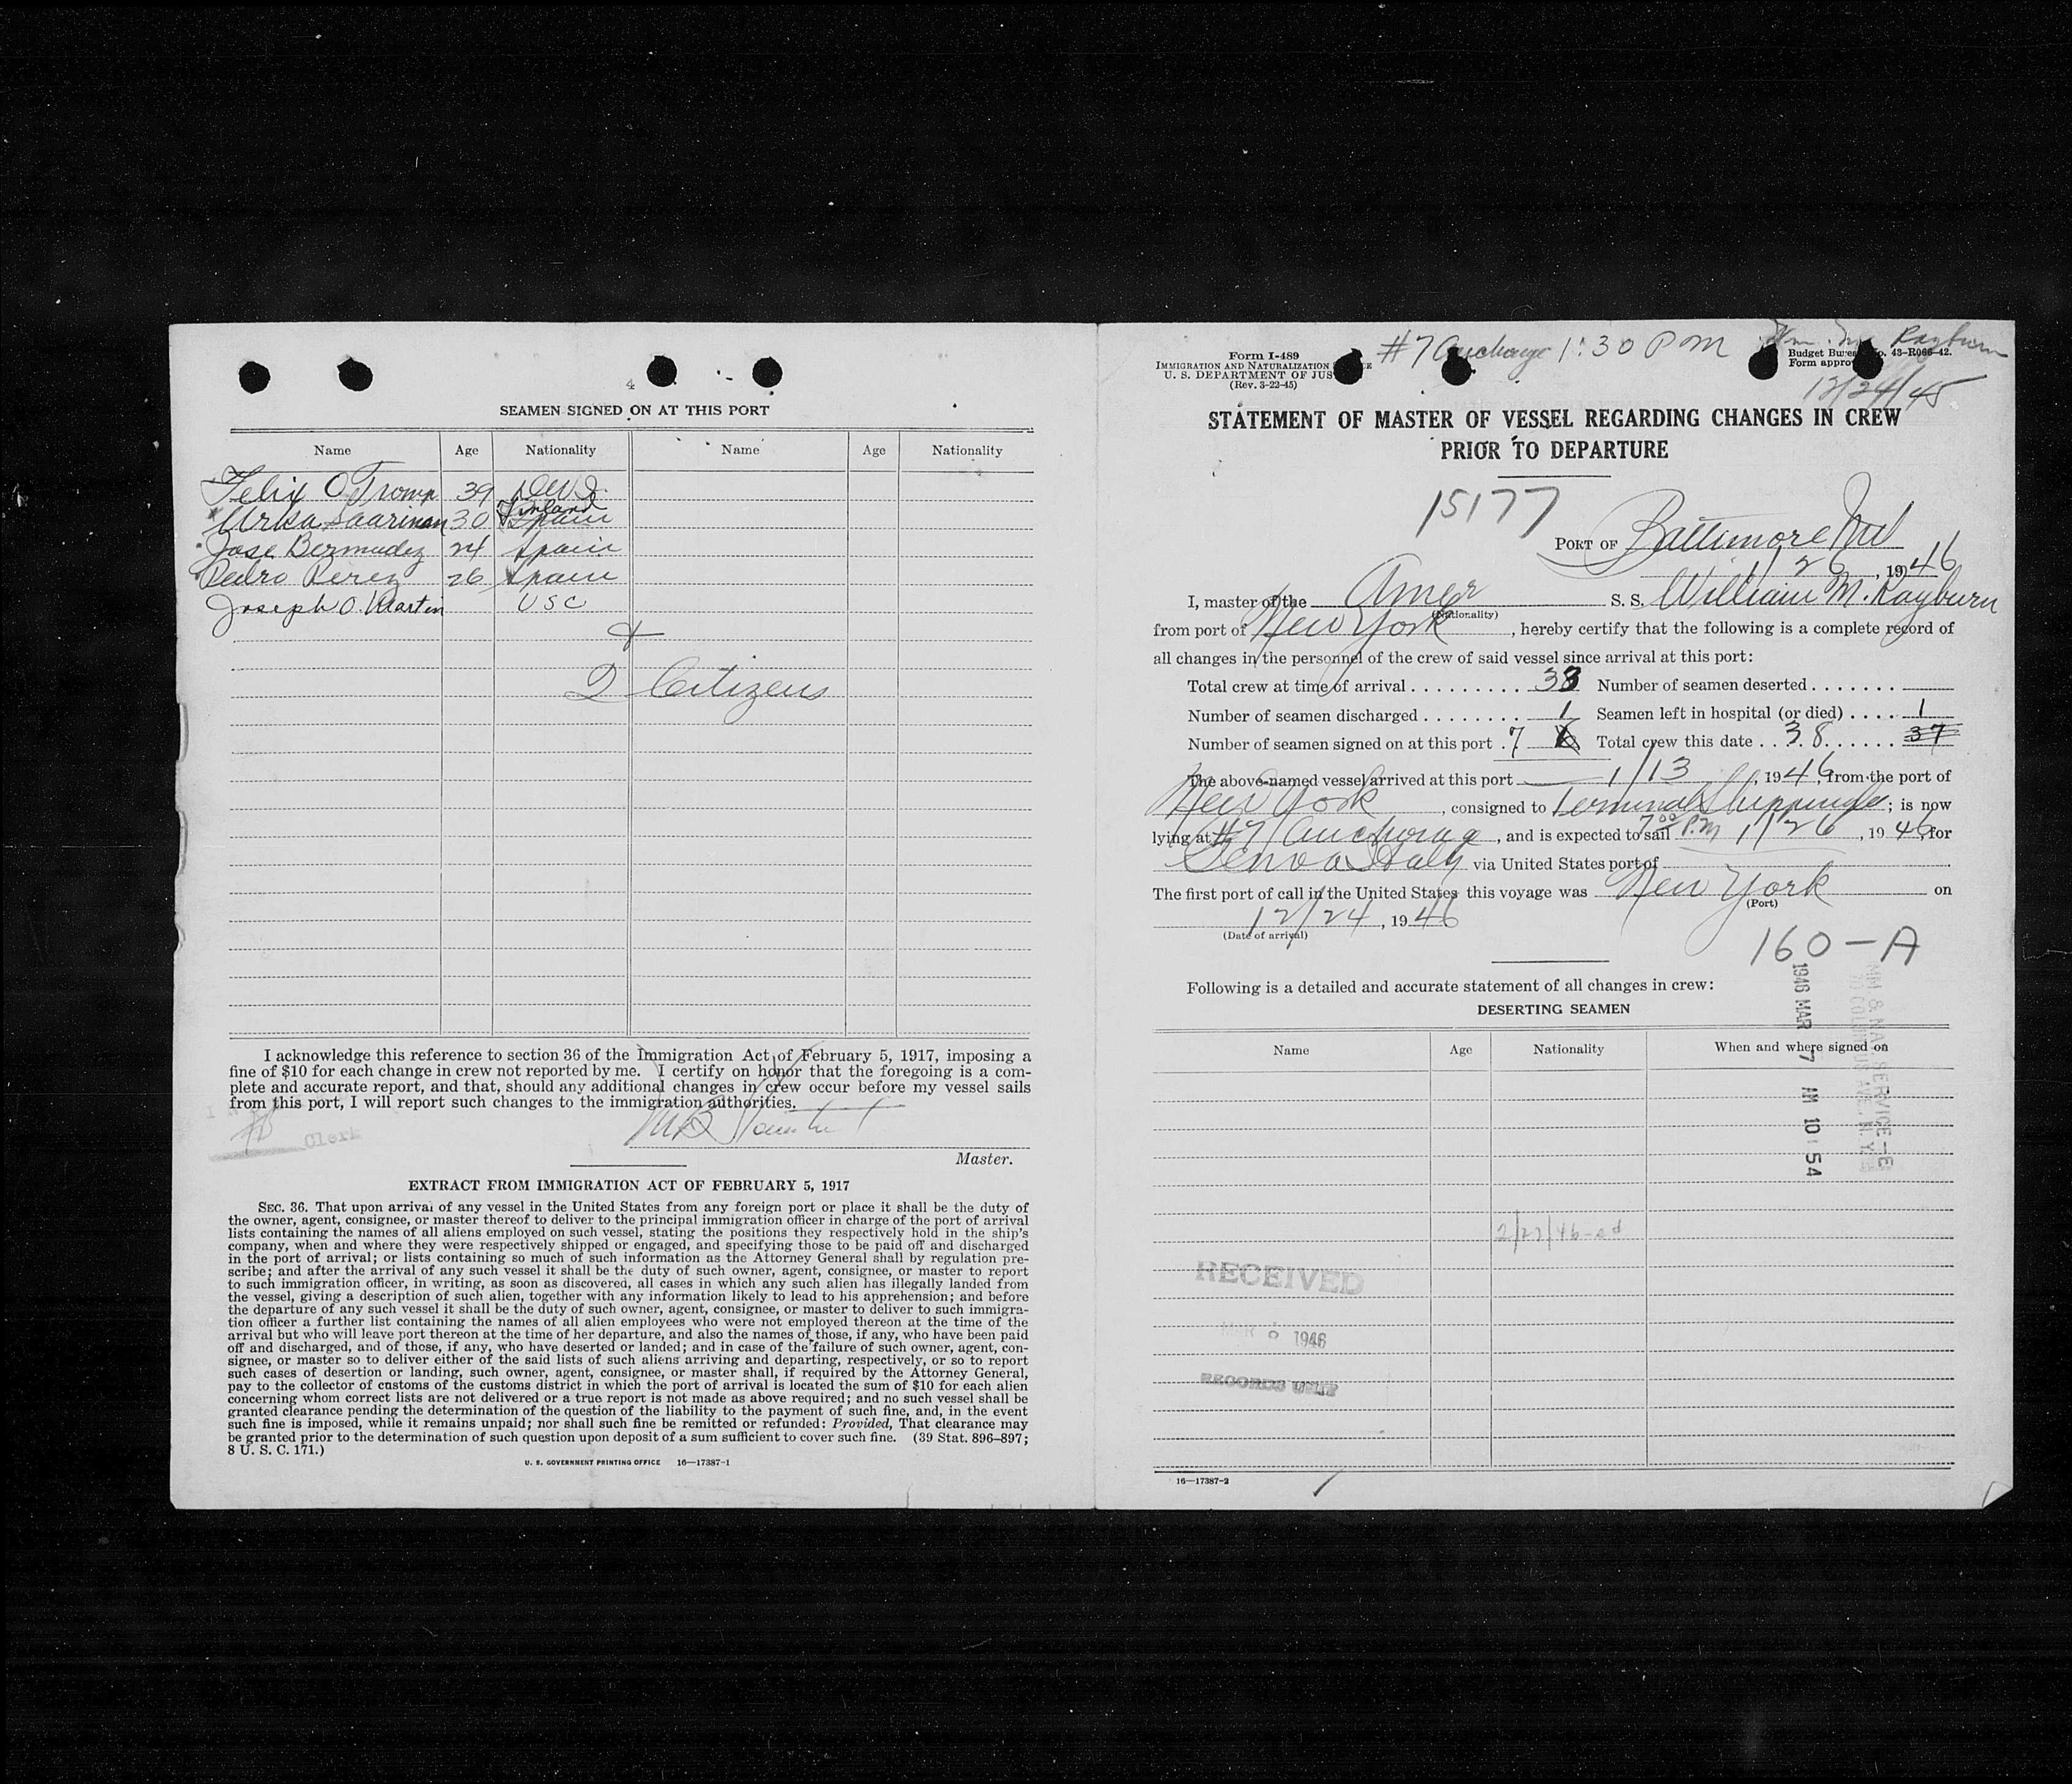 4
SEAMEN SIGNED ON AT THIS PORT
Name Age Nationality Name Age Nationality
Felix O Tromp 39 D.W.I.
Urksa Saarinen 30 Finland Spain
Jose Bermudez 24 Spain
Pedro Perez 26 Spain
Joseph O. Martin USC
+
2 Citizens
I acknowledge this reference to section 36 of the Immigration Act of February 5, 1917, imposing a
fine of $10 for each change in crew not reported by me. I certify on honor that the foregoing is a com-
plete and accurate report, and that, should any additional changes in crew occur before my vessel sails
from this port, I will report such changes to the immigration authorities.
Clerk
Master.
EXTRACT FROM IMMIGRATION ACT OF FEBRUARY 5, 1917
SEC. 36. That upon arrival of any vessel in the United States from any foreign port or place it shall be the duty of
the owner, agent, consignee, or master thereof to deliver to the principal immigration officer in charge of the port of arrival
lists containing the names of all aliens employed on such vessel, stating the positions they respectively hold in the ship's
company, when and where they were respectively shipped or engaged, and specifying those to be paid off and discharged
in the port of arrival; or lists containing so much of such information as the Attorney General shall by regulation pre-
scribe; and after the arrival of any such vessel it shall be the duty of such owner, agent, consignee, or master to report
to such immigration officer, in writing, as soon as discovered, all cases in which any such alien has illegally landed from
the vessel, giving a description of such alien, together with any information likely to lead to his apprehension; and before
the departure of any such vessel it shall be the duty of such owner, agent, consignee, or master to deliver to such immigra-
tion officer a further list containing the names of all alien employees who were not employed thereon at the time of the
arrival but who will leave port thereon at the time of her departure, and also the names of those, if any, who have been paid
off and discharged, and of those, if any, who have deserted or landed; and in case of the failure of such owner, agent, con-
signee, or master so to deliver either of the said lists of such aliens arriving and departing, respectively, or so to report
such cases of desertion or landing, such owner, agent, consignee, or master shall, if required by the Attorney General,
pay to the collector of customs of the customs district in which the port of arrival is located the sum of $10 for each alien
concerning whom correct lists are not delivered or a true report is not made as above required; and no such vessel shall be
granted clearance pending the determination of the question of the liability to the payment of such fine, and, in the event
such fine is imposed, while it remains unpaid; nor shall such fine be remitted or refunded: Provided, That clearance may
be granted prior to the determination of such question upon deposit of a sum sufficient to cover such fine. (39 Stat. 896–897;
8 U. S. C. 171.)
U. S. GOVERNMENT PRINTING OFFICE 16—17387-1
#7 Anchorage 1:30 PM Wm. M. Rayburn
12/24/45
Form I-489
IMMIGRATION AND NATURALIZATION
U. S. DEPARTMENT OF JUS
(Rev. 3-22-45)
Budget Bureau No. 43-R066-42.
Form appro
STATEMENT OF MASTER OF VESSEL REGARDING CHANGES IN CREW
PRIOR TO DEPARTURE
15177
PORT OF Baltimore Md
1/26, 1946
I, master of the Amer S. S. William M. Rayburn
(Nationality)
from port of New York, hereby certify that the following is a complete record of
all changes in the personnel of the crew of said vessel since arrival at this port:
Total crew at time of arrival 33 Number of seamen deserted
Number of seamen discharged 1 Seamen left in hospital (or died) 1
Number of seamen signed on at this port 7 Total crew this date 38 37
The above-named vessel arrived at this port 1/13, 1946, from the port of
New York, consigned to Terminal Shipping Co; is now
lying at #7 Anchorag, and is expected to sail 7 00 P.M 1/26, 1946, for
Genoa Italy via United States port of
The first port of call in the United States this voyage was New York on
(Port)
12/24, 1946
(Date of arrival)
160-A
Following is a detailed and accurate statement of all changes in crew:
DESERTING SEAMEN
Name Age Nationality When and where signed on
1946 MAR 7 AM 10 54
2/27/46-ed
RECEIVED
MAR 6 1946
RECORDS UNIT
16—17387-2